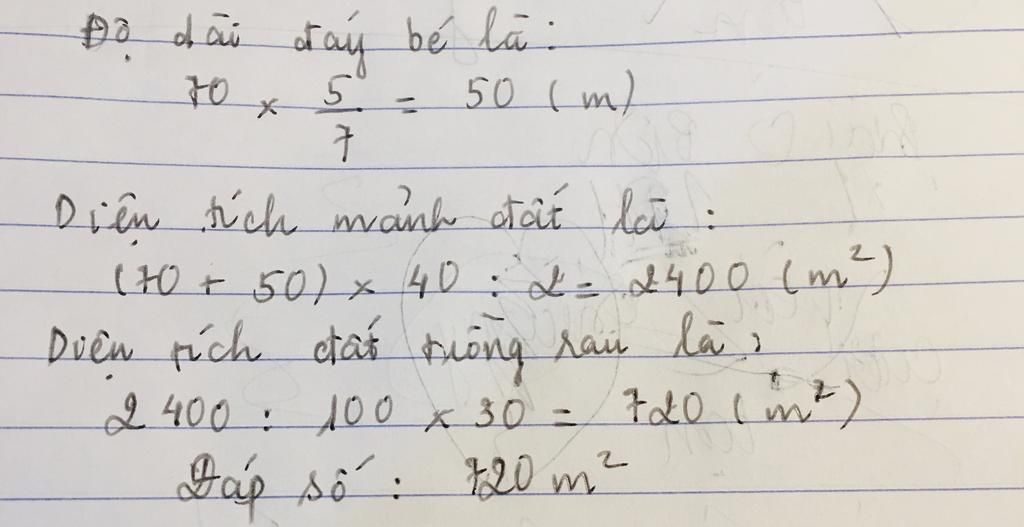 Độ dài đáy bé là:
70 × 5/7 = 50 (m)
Diện tích mảnh đất là:
(70 + 50) × 40 : 2 = 2400 (m²)
Diện tích đất trồng rau là:
2400 : 100 × 30 = 720 (m²)
Đáp số: 720 m²